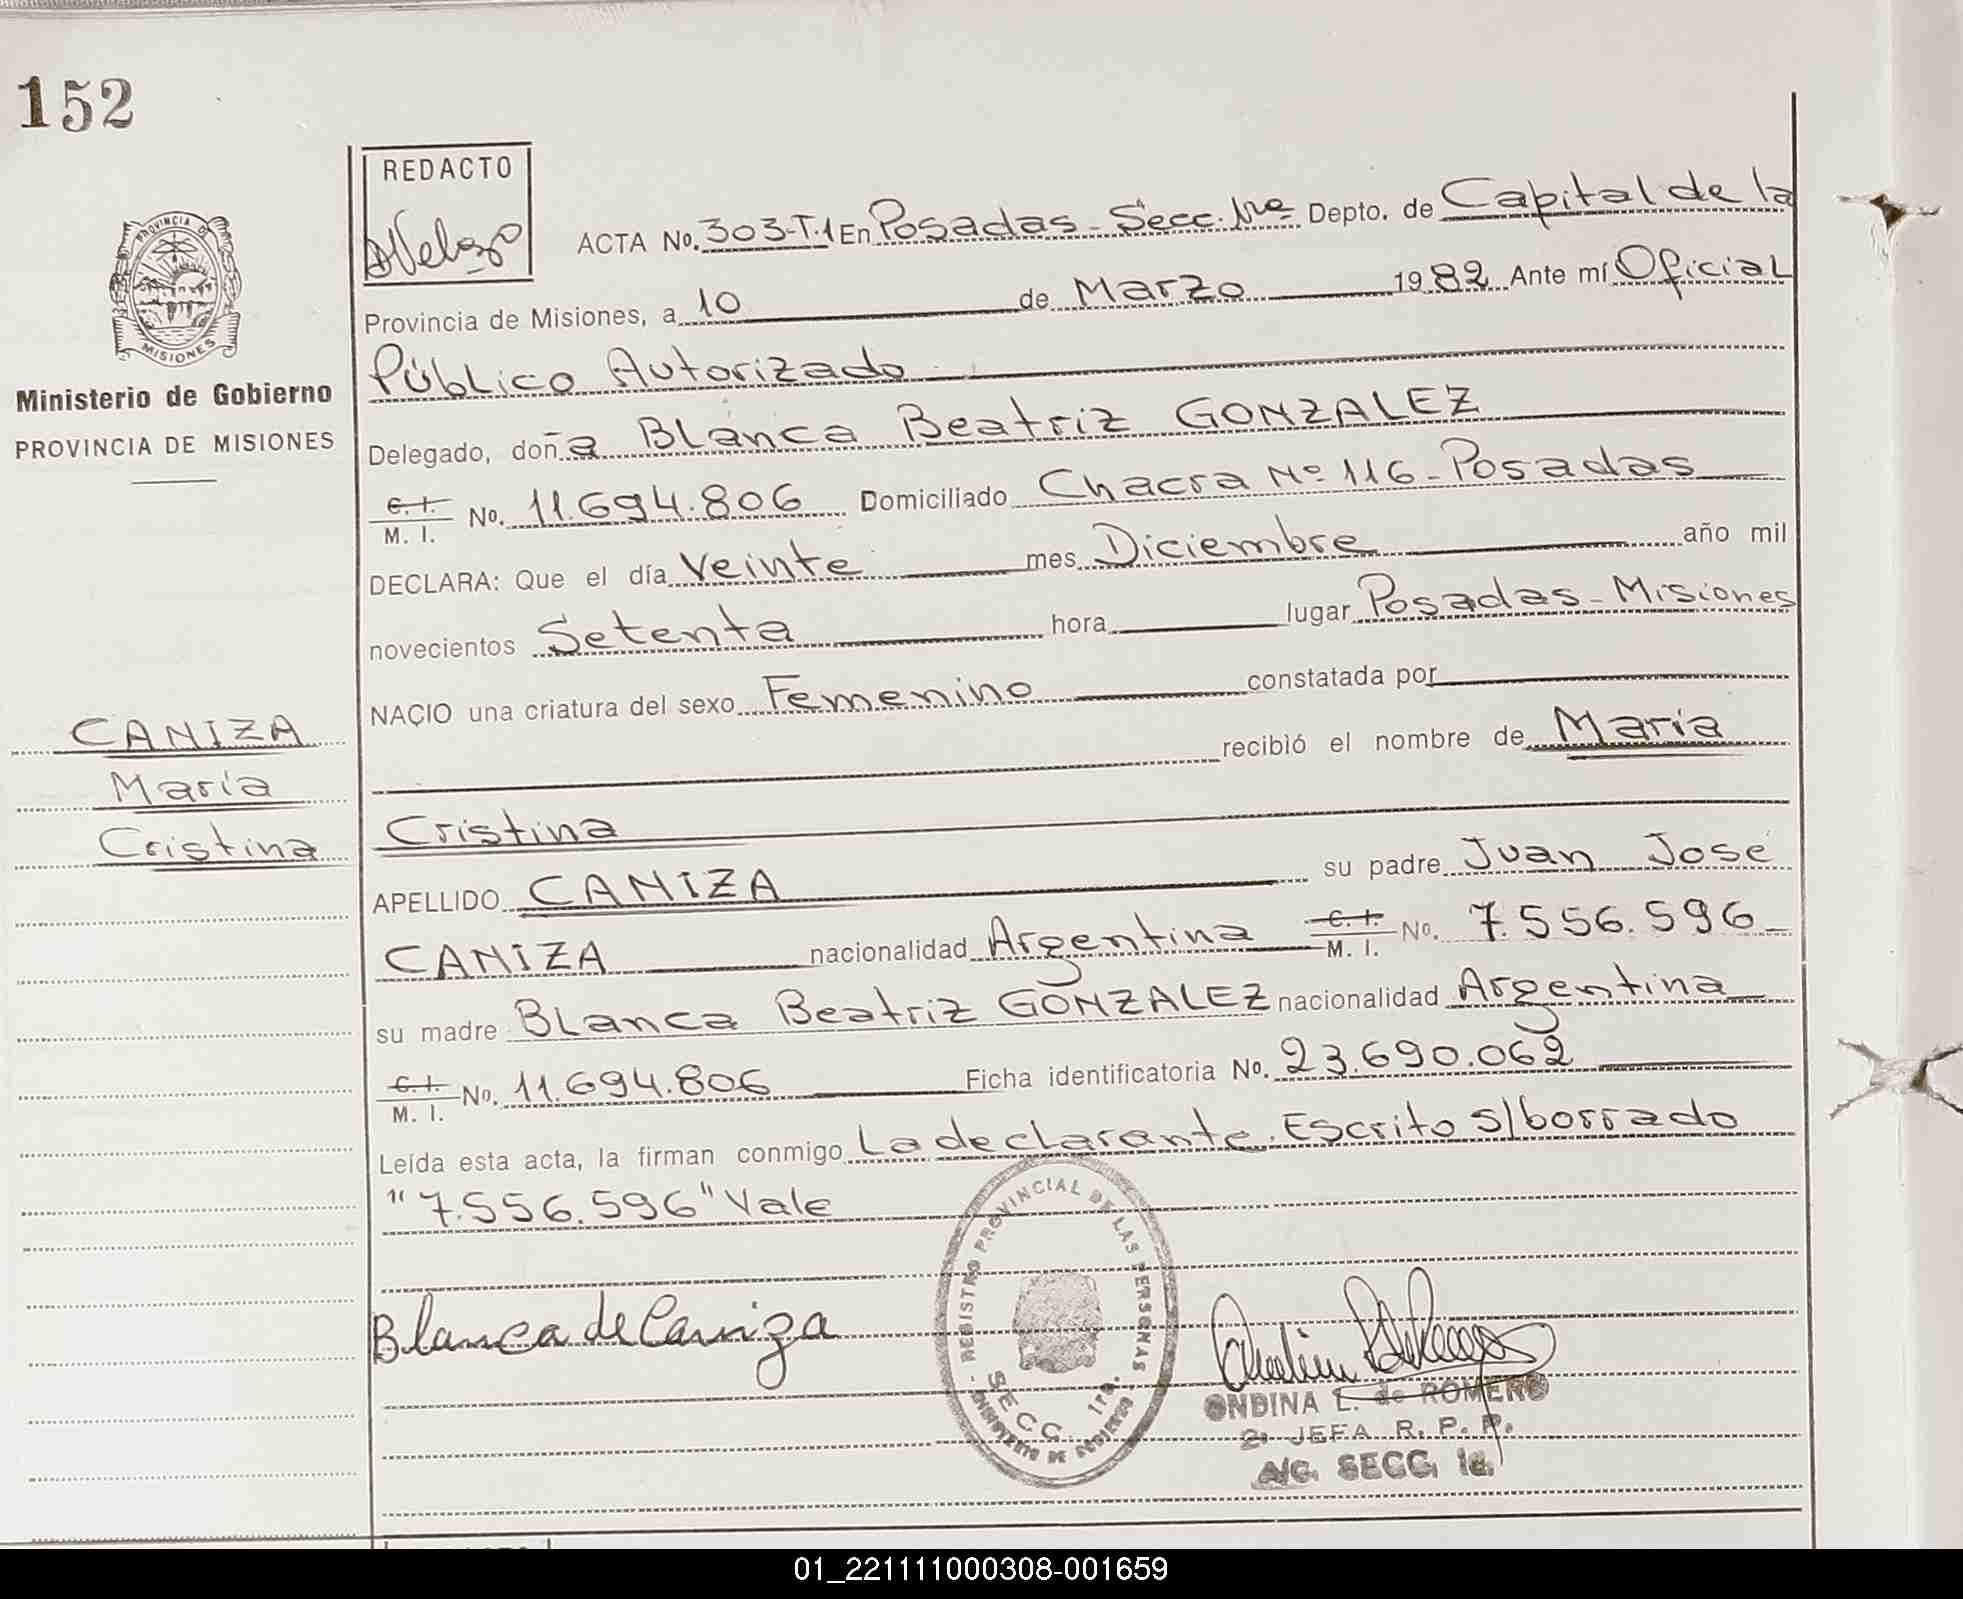 152
REDACTO
PROVINCIA DE
MISIONES
Ministerio de Gobierno
PROVINCIA DE MISIONES
ACTA No. 303-T.1 En Posadas - Secc. 1ra Depto. de Capital de la
Provincia de Misiones, a 10 de Marzo 1982 Ante mí Oficial
Público Autorizado
Delegado, doña Blanca Beatriz GONZALEZ
C. I.
M. I. No. 11.694.806 Domiciliado Chacra Nº 116 - Posadas
DECLARA: Que el día Veinte mes Diciembre año mil
novecientos Setenta hora lugar Posadas - Misiones
NACIO una criatura del sexo Femenino constatada por
recibió el nombre de María
Cristina
CANIZA
María
Cristina
APELLIDO CANIZA su padre Juan José
CANIZA nacionalidad Argentina C. I. M. I. No. 7.556.596
su madre Blanca Beatriz GONZALEZ nacionalidad Argentina
C. I.
M. I. No. 11.694.806 Ficha identificatoria No. 23.690.062
Leída esta acta, la firman conmigo La declarante. Escrito s/borrado
"7.556.596" Vale
Blanca de Caniza
REGISTRO PROVINCIAL DE LAS PERSONAS
SECC. 1ra.
MINISTERIO DE GOBIERNO
ONDINA L. de ROMERO
2ª JEFA R. P. P.
A/C. SECC. 1a.
01_221111000308-001659